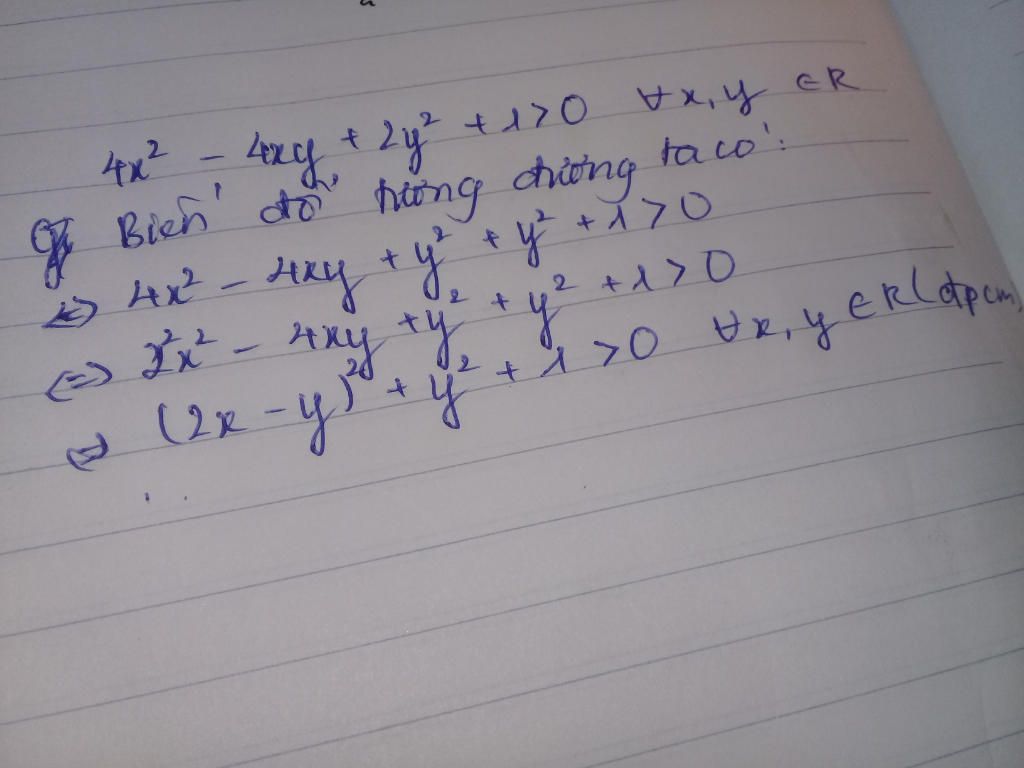 4x² - 4xy + 2y² + 1 > 0 ∀x, y ∈ R
Biến đổi tương đương ta có:
<=> 4x² - 4xy + y² + y² + 1 > 0
<=> 2²x² - 4xy + y² + y² + 1 > 0
<=> (2x - y)² + y² + 1 > 0 ∀x, y ∈ R (đpcm)